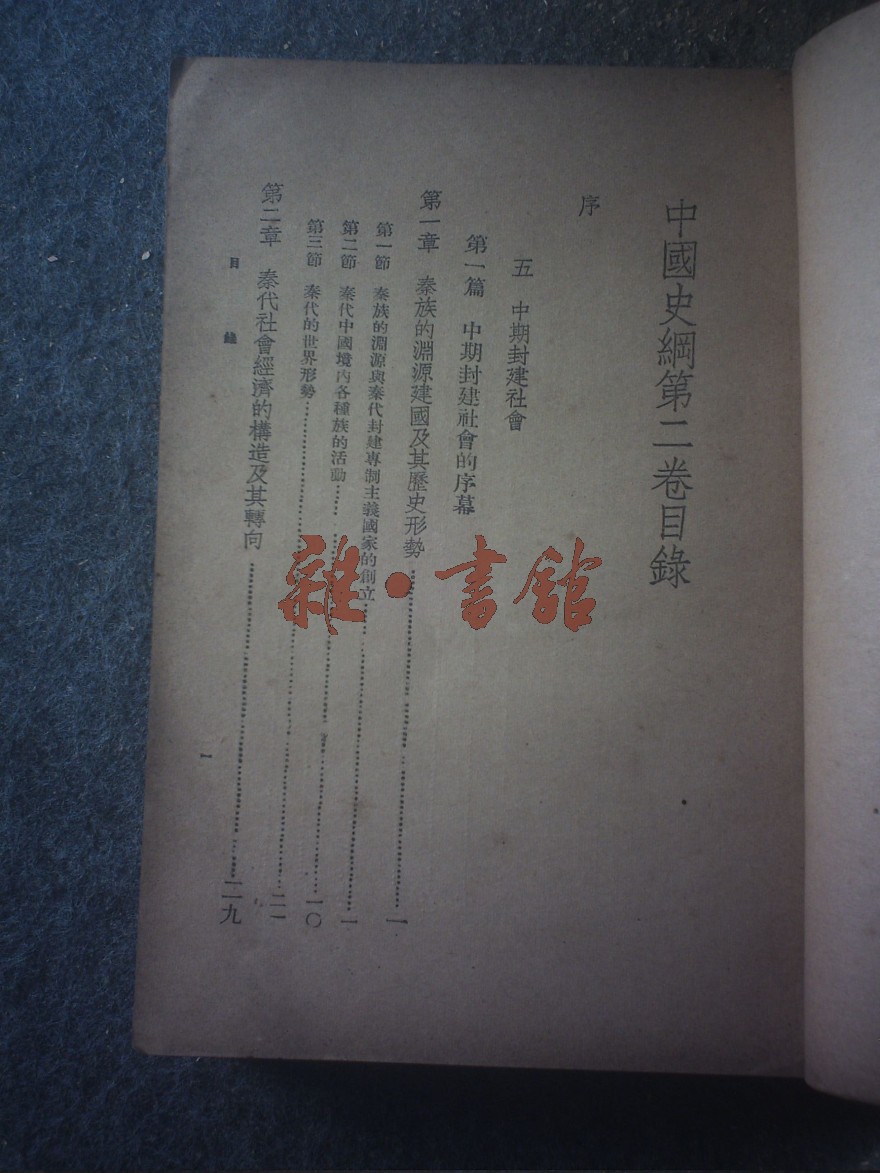 中國史綱第二卷目錄
序
五 中期封建社會
第一篇 中期封建社會的序幕
第一章 秦族的淵源建國及其歷史形勢……一
第一節 秦族的淵源與秦代封建專制主義國家的創立……一
第二節 秦代中國境內各種族的活動……一〇
第三節 秦代的世界形勢……二一
第二章 秦代社會經濟的構造及其轉向……二九
目 錄
一
雜·書館